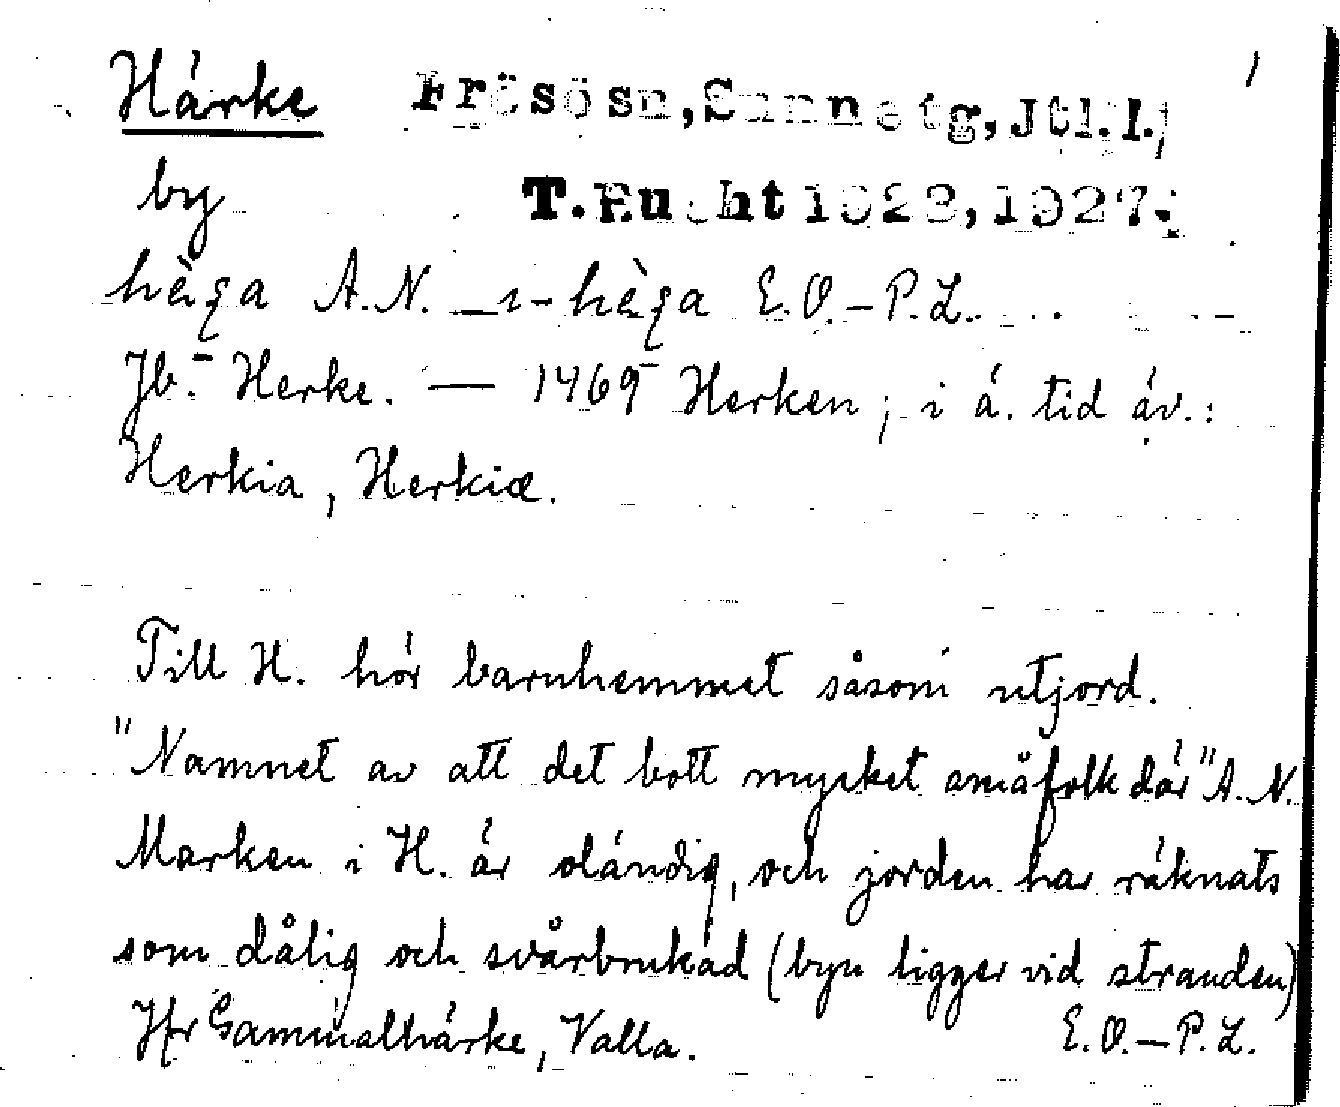 Härke Frösön, Sunnetg, Jtl. l., 1
by T. Bucht 1923, 1927.
A.N. E.O.–P.L.
Jb. – Herke. — 1469 Herken; i ä. tid äv.:
Herkia, Herkiæ.
Till H. hör barnhemmet såsom utjord.
"Namnet av att det bott mycket småfolk där" A.N.
Marken i H. är oländig, och jorden har räknats
som dålig och svårbrukad (byn ligger vid stranden)
Jfr Gammalhärke, Valla. E.O.–P.L.